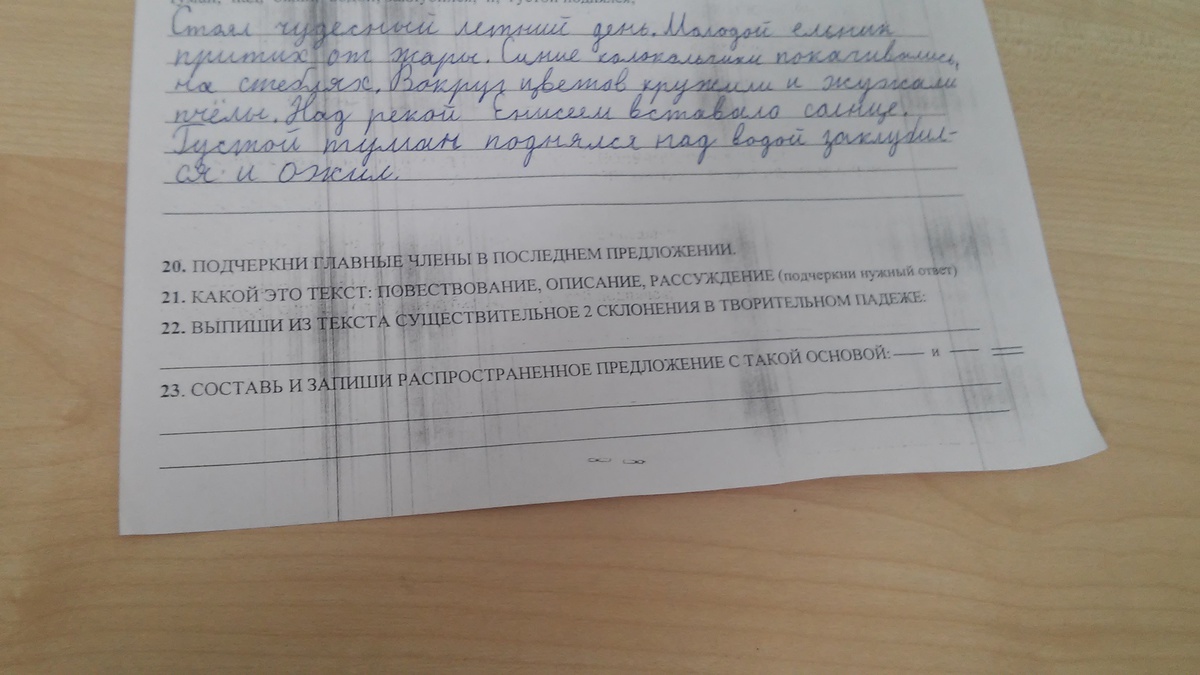 Стоял чудесный летний день. Молодой ельник
притих от жары. Синие колокольчики покачивались,
на стеблях. Вокруг цветов кружили и жужжали
пчёлы. Над рекой Енисеем вставало солнце.
Густой туман поднялся над водой заклубил-
ся и ожил.
20. ПОДЧЕРКНИ ГЛАВНЫЕ ЧЛЕНЫ В ПОСЛЕДНЕМ ПРЕДЛОЖЕНИИ.
21. КАКОЙ ЭТО ТЕКСТ: ПОВЕСТВОВАНИЕ, ОПИСАНИЕ, РАССУЖДЕНИЕ (подчеркни нужный ответ)
22. ВЫПИШИ ИЗ ТЕКСТА СУЩЕСТВИТЕЛЬНОЕ 2 СКЛОНЕНИЯ В ТВОРИТЕЛЬНОМ ПАДЕЖЕ:
23. СОСТАВЬ И ЗАПИШИ РАСПРОСТРАНЕННОЕ ПРЕДЛОЖЕНИЕ С ТАКОЙ ОСНОВОЙ: — и —